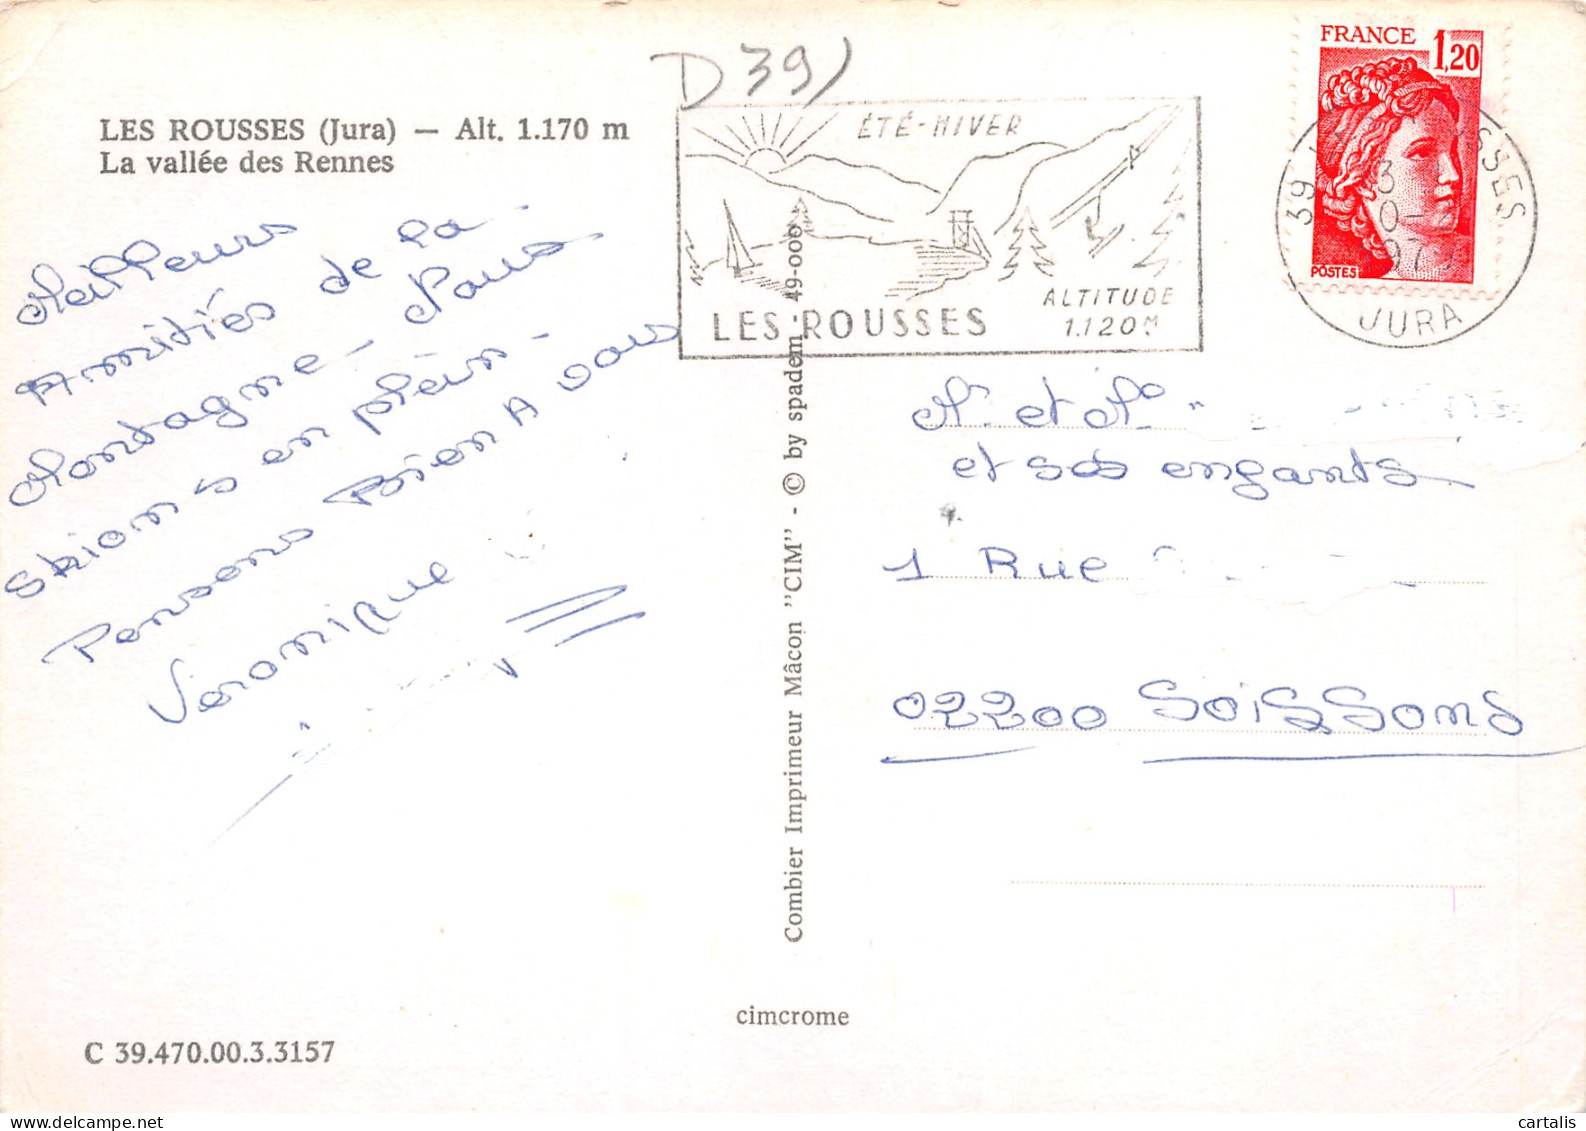 D39)
LES ROUSSES (Jura) — Alt. 1.170 m
La vallée des Rennes
Meilleurs
Amitiés de la
Montagne - Nous
skions en plein -
Pensons Bien A vous
Veronique
ÉTÉ-HIVER
LES ROUSSES
ALTITUDE
1.120 M
FRANCE 1,20
POSTES
39
SSES
JURA
Combier Imprimeur Mâcon "CIM" - © by spadem - 49-000
Mr et Me
et ses enfants
1 Rue
02200 Soissons
cimcrome
C 39.470.00.3.3157
delcampe.net
cartalis